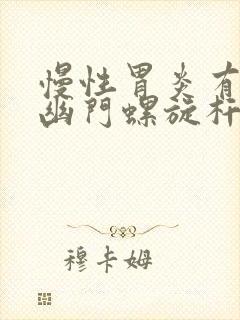 慢性胃炎有
幽門螺旋杆
穆卡姆